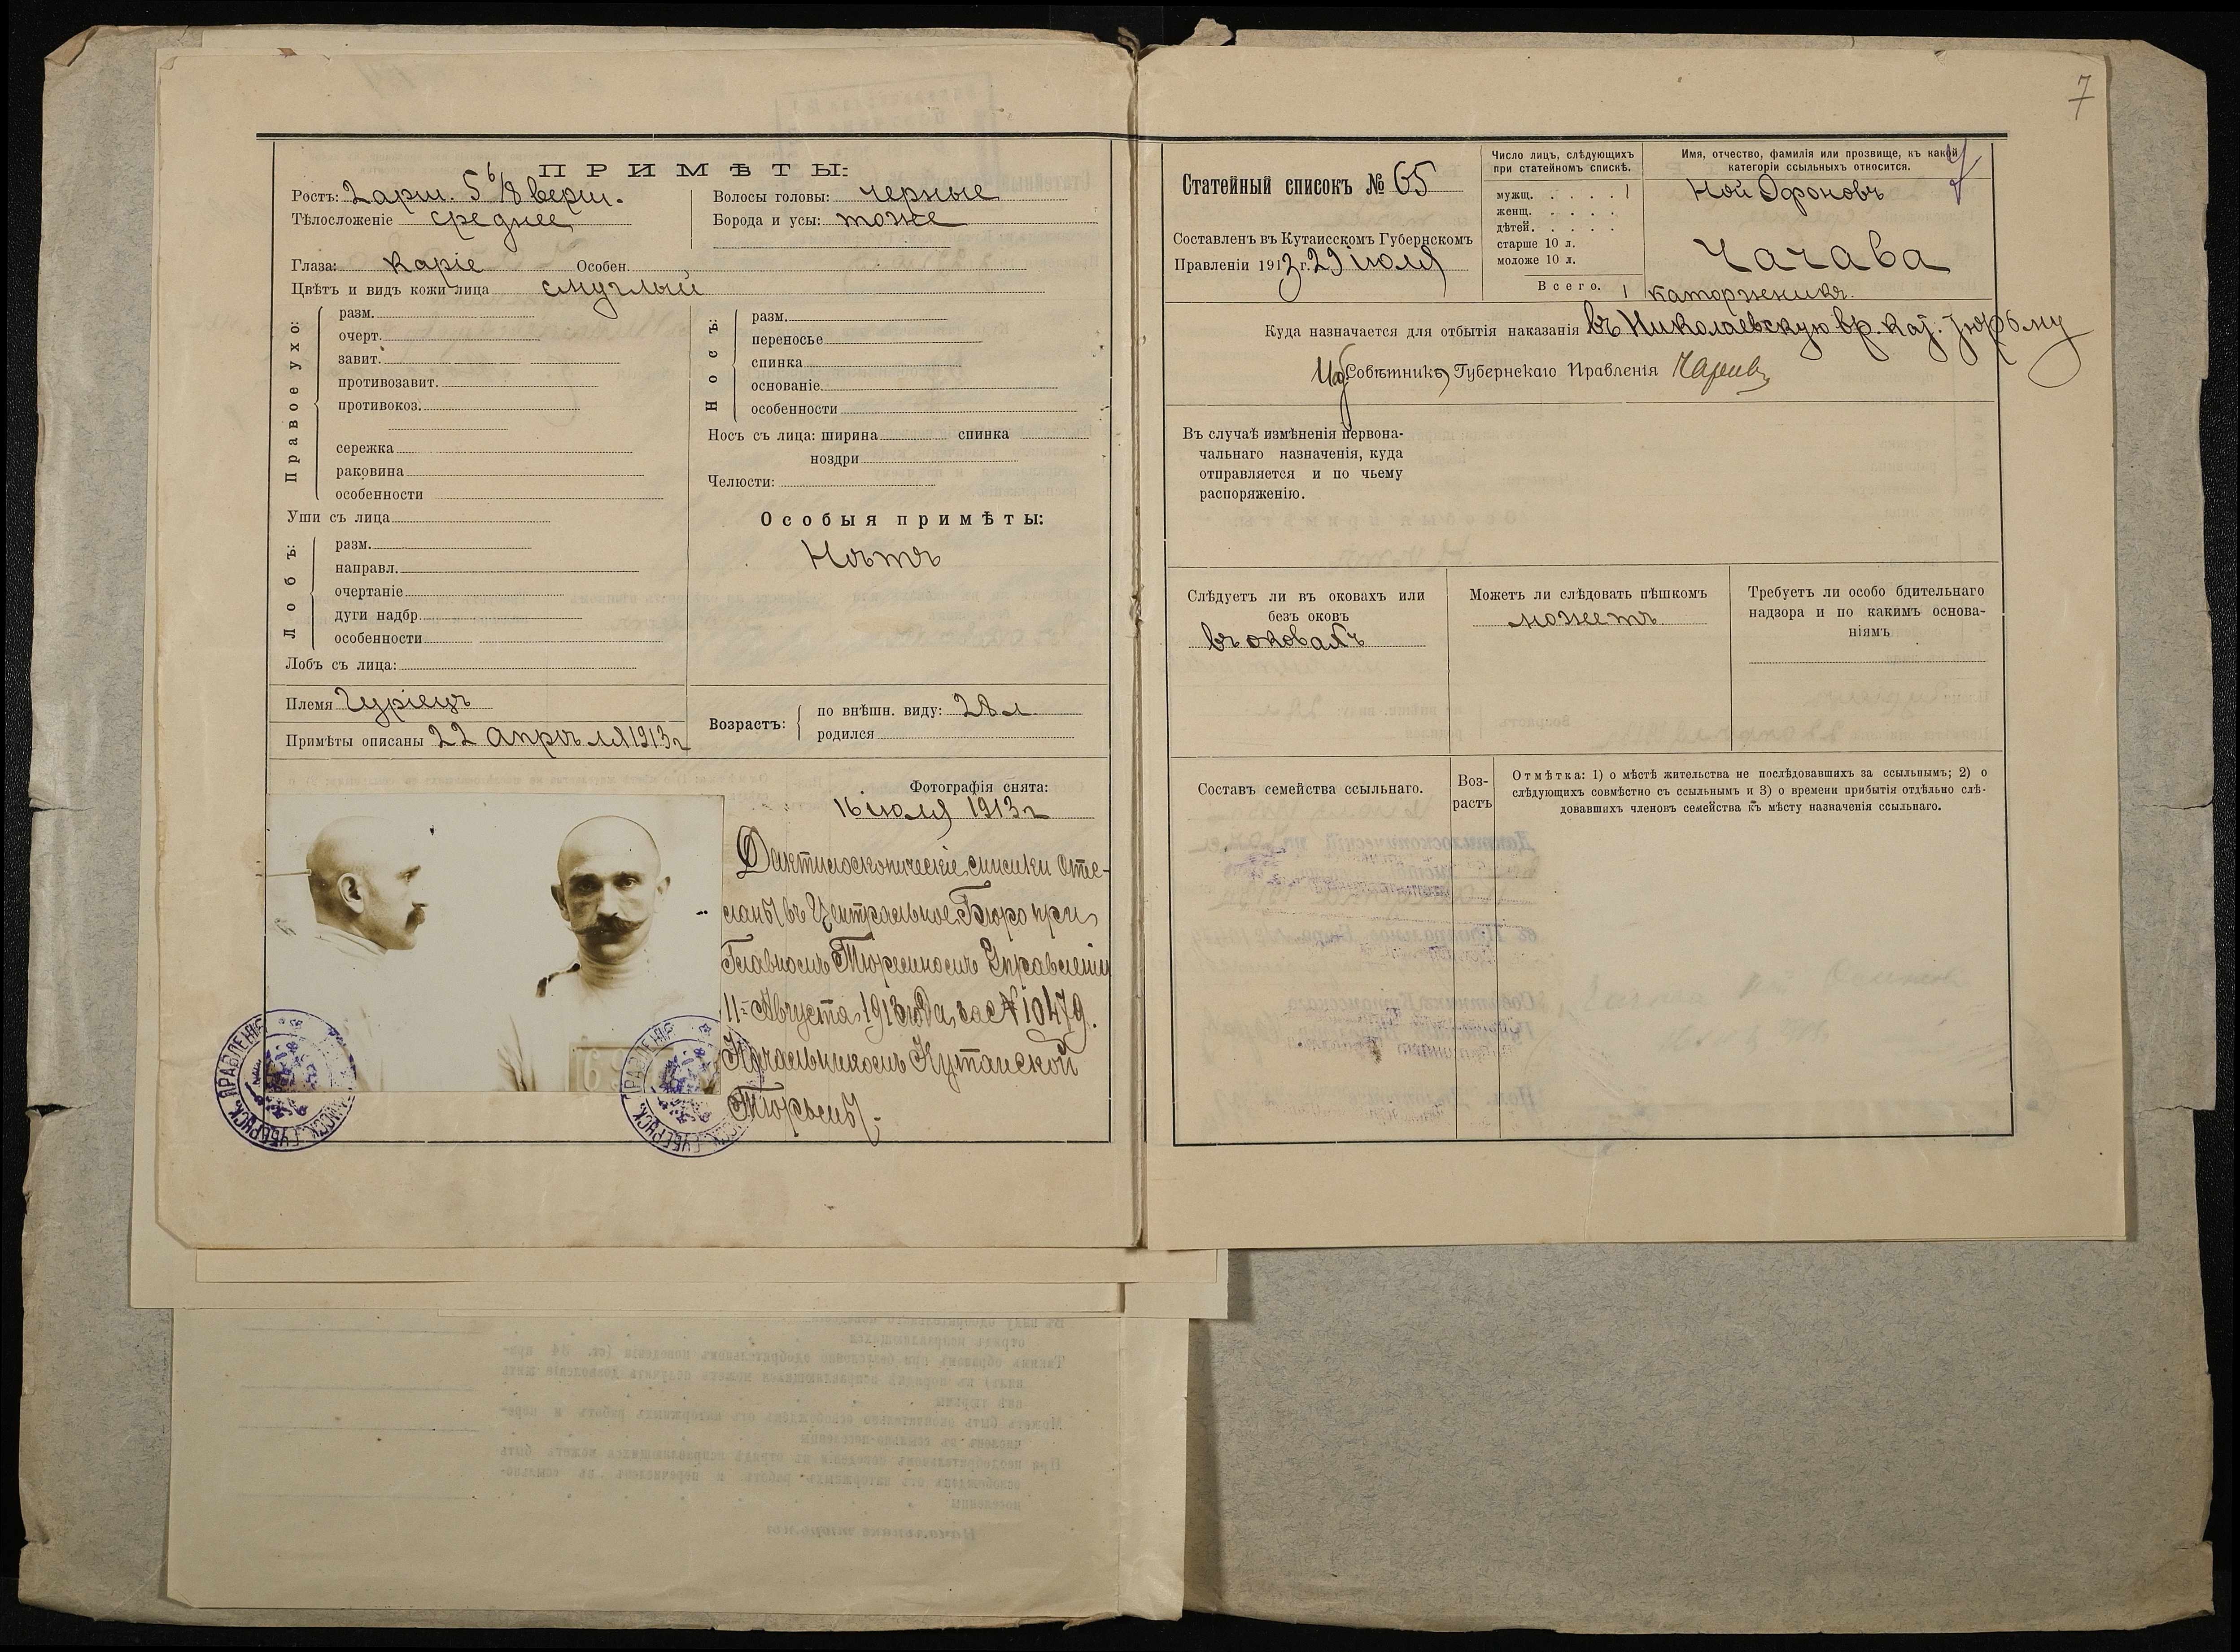 7
ПРИМѢТЫ:
Ростъ: 2 арш. 5 6/8 верш.
Тѣлосложеніе среднее
Волосы головы: черные
Борода и усы: тоже
Глаза: Каріе Особен.
Цвѣтъ и видъ кожи лица смуглый
Правое ухо:
разм.
очерт.
завит.
противозавит.
противокоз.
сережка
раковина
особенности
Уши съ лица
Лобъ:
разм.
направл.
очертаніе
дуги надбр
особенности
Лобъ съ лица:
Носъ:
разм.
переносье
спинка
основаніе
особенности
Носъ съ лица: ширина спинка
ноздри
Челюсти:
Особыя примѣты:
Нѣтъ
Племя Гуріецъ
Примѣты описаны 22 Апрѣля 1913 г
Возрастъ:
по внѣшн. виду: 28 л
родился
Фотографія снята:
16 іюля 1913 г
Дактилоскопическіе списки отос-
ланы въ Центральное Бюро при
Главномъ Тюремномъ Управленіи
11 Августа 1913 года за № 10479.
Начальникомъ Кутаиской
Тюрьмы.
Статейный списокъ № 65
Составленъ въ Кутаисскомъ Губернскомъ
Правленіи 1913 г. 29 іюля
Число лицъ, слѣдующихъ
при статейномъ спискѣ.
мужщ. . . . . 1
женщ. . . . .
дѣтей. . . . .
старше 10 л.
моложе 10 л.
Всего. 1
Имя, отчество, фамилія или прозвище, къ какой
категоріи ссыльныхъ относится.
Ной Офоновъ
Чачава
каторжникъ.
Куда назначается для отбытія наказанія въ Николаевскую вр. кат. тюрьму
Совѣтникъ Губернскаго Правленія
Въ случаѣ измѣненія первона-
чальнаго назначенія, куда
отправляется и по чьему
распоряженію.
Слѣдуетъ ли въ оковахъ или
безъ оковъ
въ оковахъ
Можетъ ли слѣдовать пѣшкомъ
можетъ
Требуетъ ли особо бдительнаго
надзора и по какимъ основа-
ніямъ
Составъ семейства ссыльнаго.
Воз-
растъ
Отмѣтка: 1) о мѣстѣ жительства не послѣдовавшихъ за ссыльнымъ; 2) о
слѣдующихъ совмѣстно съ ссыльнымъ и 3) о времени прибытія отдѣльно слѣ-
довавшихъ членовъ семейства къ мѣсту назначенія ссыльнаго.